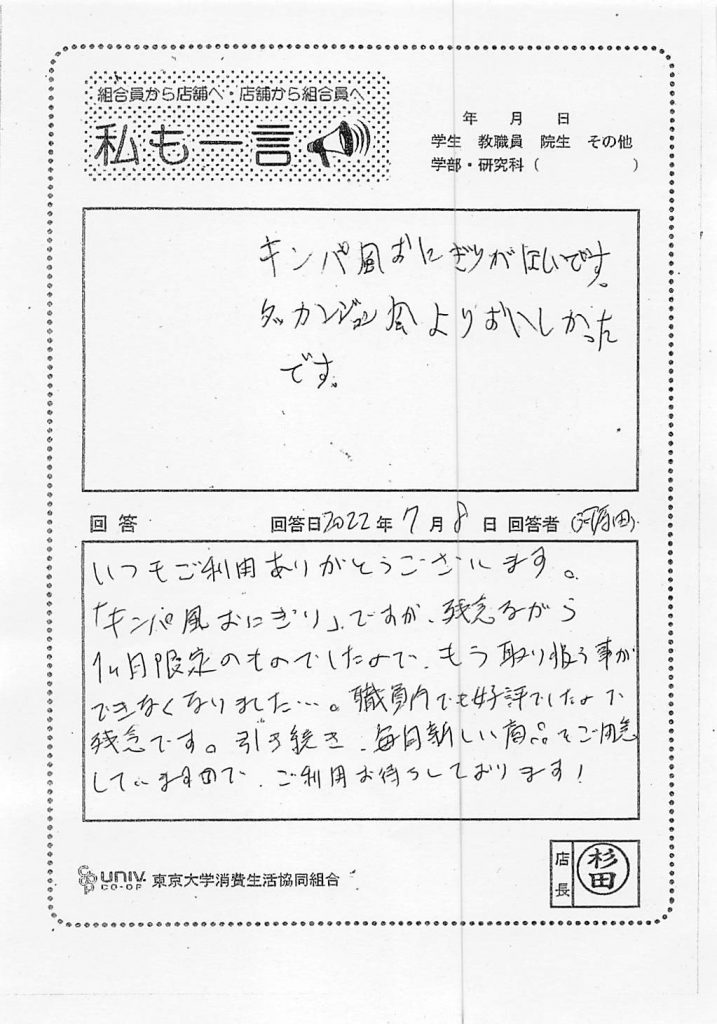 組合員から店舗へ・店舗から組合員へ
私も一言
年 月 日
学生 教職員 院生 その他
学部・研究科( )
キンパ風おにぎりがほしいです。
ダッカンジョン風よりおいしかった
です。
回答 回答日2022年7月8日 回答者(河原田)
いつもご利用ありがとうございます。
「キンパ風おにぎり」ですが、残念ながら
1ヶ月限定のものでしたので、もう取り扱う事が
できなくなりました…。職員内でも好評でしたので
残念です。引き続き、毎月新しい商品をご用意
していますので、ご利用お待ちしております!
UNIV. CO-OP 東京大学消費生活協同組合
店長 杉田